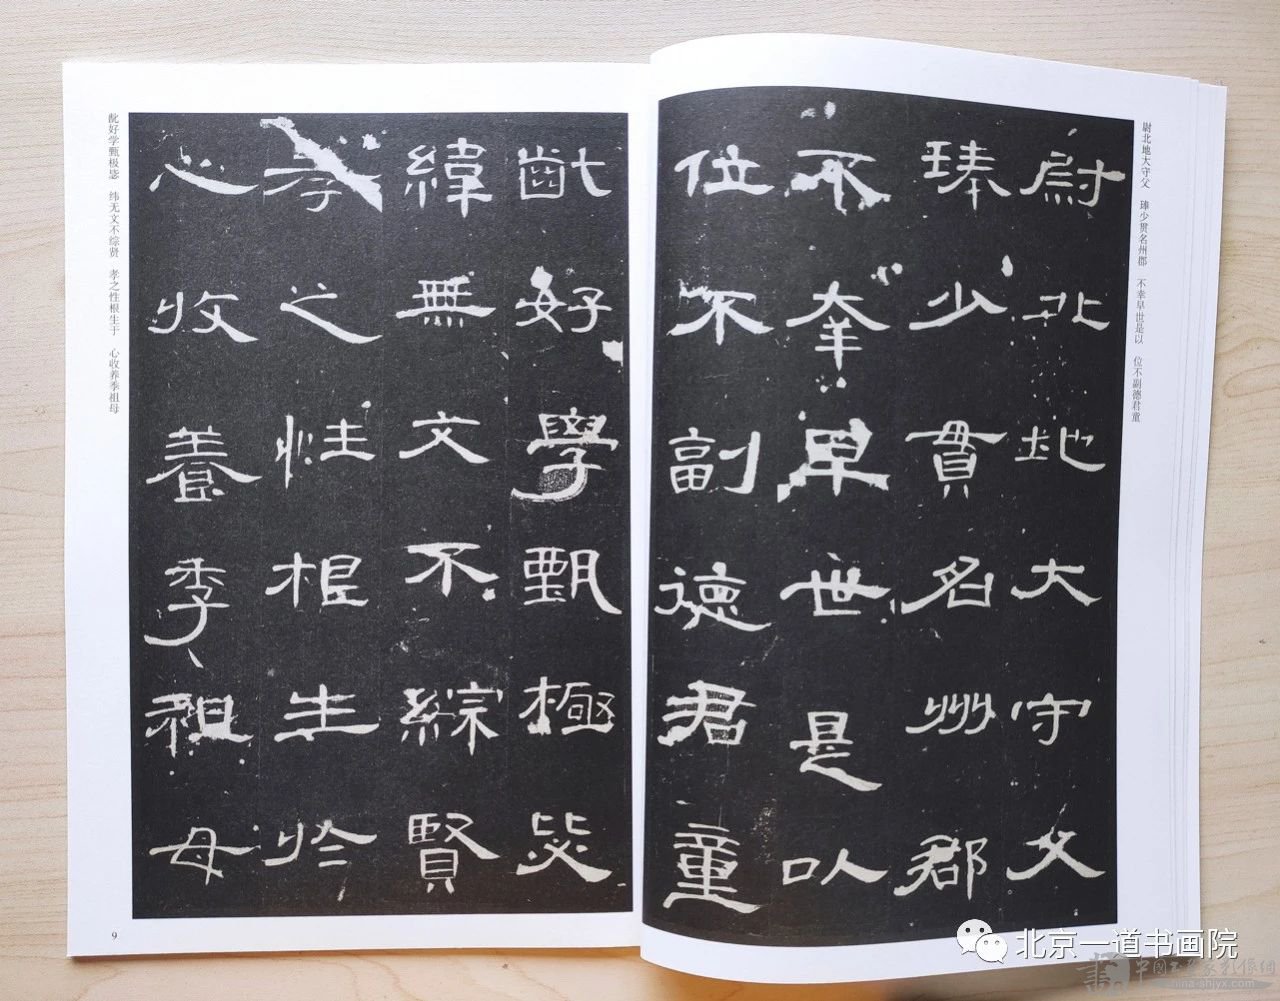 尉北地大守父 琫少贯名州郡 不幸早世是以 位不副德君童
尉北地大守父
琫少貫名州郡
不幸早世是以
位不副德君童
齔好學甄極毖
緯無文不綜賢
孝之性根生於
心收養季祖母
龀好学甄极毖 纬无文不综贤 孝之性根生于 心收养季祖母
9
北京一道书画院
china-shjyx.com